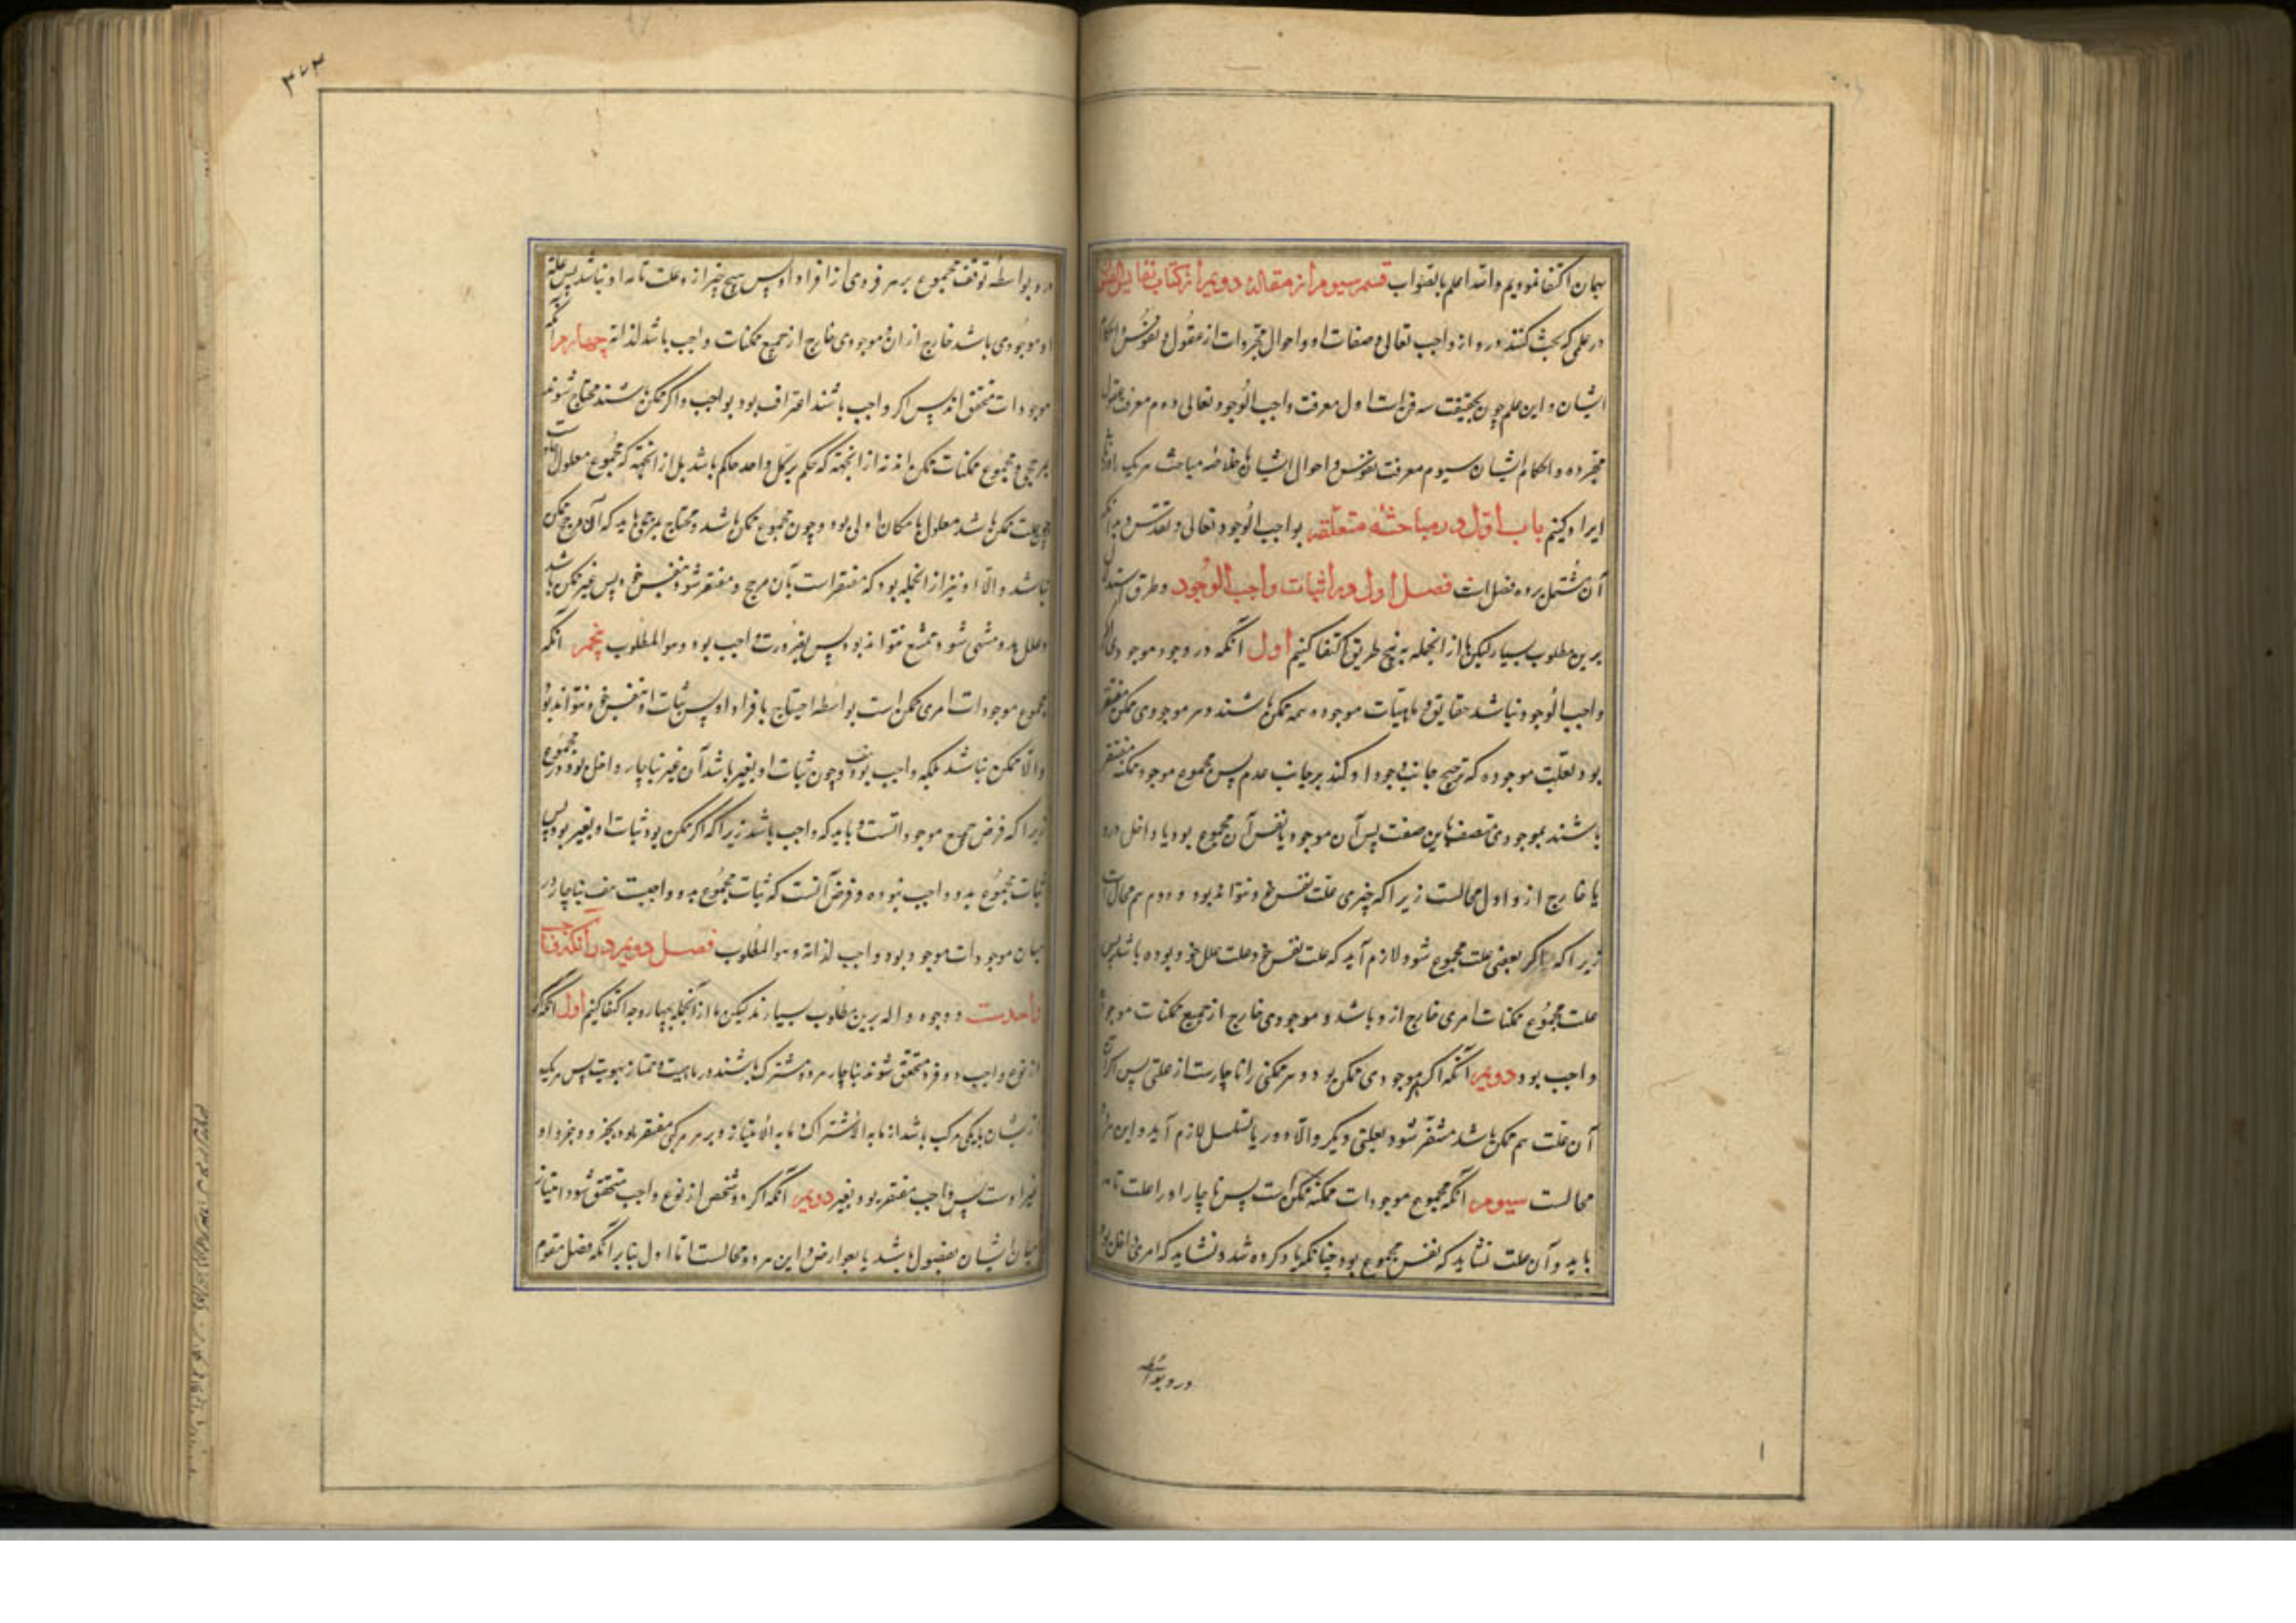 بهمان اکتفا نمودیم والله اعلم بالصواب قسم سیوم از مقالهٔ دویم از کتاب نفایس الفنون
در علمی که بحث کنند درو از واجب تعالی و صفات او و احوال مجردات از عقول و نفوس و احکام
ایشان و این علم چون بحقیقت سه فن است اول معرفت واجب الوجود تعالی دوم معرفت عقول
مجرده و احکام ایشان سیوم معرفت نفوس و احوال ایشان ما خلاصه مباحث هریک را در بابی
ایراد کنیم باب اول در مباحثه متعلقه بواجب الوجود تعالی و تقدس و بدانکه
آن مشتمل بر ده فصل است فصل اول در اثبات واجب الوجود و طرق استدلال
برین مطلوب بسیار لیکن ما از انجمله به پنج طریق اکتفا کنیم اول آنکه در وجود موجودی اگر
واجب الوجود نباشد حقایق و ماهیات موجوده همه ممکن باشند و هر موجودی ممکن مفتقر
بود بعلت موجوده که ترجیح جانب وجود او کند بر جانب عدم پس مجموع موجود ممکنه مفتقر
باشند بموجودی متصف باین صفت پس آن موجود یا نفس آن مجموع بود یا داخل درو
یا خارج ازو اول محالست زیرا که چیزی علت نفس خود نتواند بود و دوم هم محال است
زیرا که اگر بعضی علت مجموع شود لازم آید که علت نفس خود و علت علل خود بوده باشد پس
علت مجموع ممکنات امری خارج ازو باشد و موجودی خارج از جمیع ممکنات موجود
واجب بود دویم آنکه اگر موجودی ممکن بود و هر ممکنی را ناچارست از علتی پس اگر
آن علت هم ممکن باشد مفتقر شود بعلتی دیگر و الا دور یا تسلسل لازم آید و این هر دو
محالست سیوم آنکه مجموع موجودات ممکنه ممکن است پس ناچار او را علت تامه
باید و آن علت نشاید که نفس مجموع بود چنانکه یاد کرده شد و نشاید که امری داخل بود
درو بواسطه
۳۷۳
درو بواسطه توقف مجموع بر هر فردی از افراد او پس هیچ چیز ازو علت تامه او نباشد پس علة
او موجودی باشد خارج از ان و موجودی خارج از جمیع ممکنات واجب باشد لذاته چهارم آنکه
موجودات متحقق اند پس اگر واجب باشند اعتراف بود بواجب و اگر ممکن باشند محتاج شوند
بمرجحی و مجموع ممکنات ممکن اند نه از انجهته که حکم بر کل واحد حاکم باشد بل از انجهته که مجموع معلول
چون علت ممکن باشد معلول بامکان اولی بود و چون مجموع ممکن باشد و محتاج بمرجحی باید که آن مرجح ممکن
نباشد والا او نیز از انجمله بود که مفتقر است بآن مرجح و مفتقر شود بنفس خود پس غیر ممکن باشد
و علل بدو منتهی شود و ممتنع نتواند بود پس بضرورت واجب بود و هو المطلوب پنجم آنکه
مجموع موجودات امری ممکن است بواسطه احتیاج بافراد او پس ثبات او بنفس خود نتواند بود
والا ممکن نباشد بلکه واجب بود هف و چون ثبات او بغیر باشد آن غیر ناچار داخل بود در مجموع
زیرا که فرض جمیع موجوداتست و باید که واجب باشد زیرا که اگر ممکن بود ثبات او بغیر بود پس
ثبات مجموع بدو واجب نبوده و فرض آنست که ثبات مجموع بدو واجبست هف ناچار در
میان موجودات موجود بود واجب لذاته و هو المطلوب فصل دویم در آنکه واجب
واحدست و وجوه داله برین مطلوب بسیارند لیکن ما از آنجمله بچهار وجه اکتفا کنیم اول آنکه اگر
از نوع واجب دو فرد متحقق شوند ناچار هر دو مشترک باشند در ماهیت و ممتاز بهویت پس هریک
از ایشان مرکب باشد از ما به الاشتراک و ما به الامتیاز و هر مرکبی مفتقر بود بجزو و جزو او
غیر اوست پس واجب مفتقر بود بغیر دویم آنکه اگر دو شخص از نوع واجب متحقق شود امتیاز
میان ایشان بفصول باشد یا بعوارض و این هر دو محالست اما اول بنابر آنکه فصل مقوم